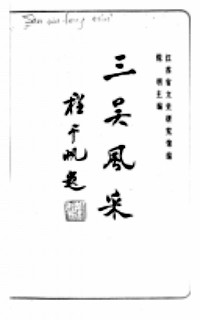 San wu feng cai
江苏省文史研究馆编
陈明主编
三吴風采
程千帆题